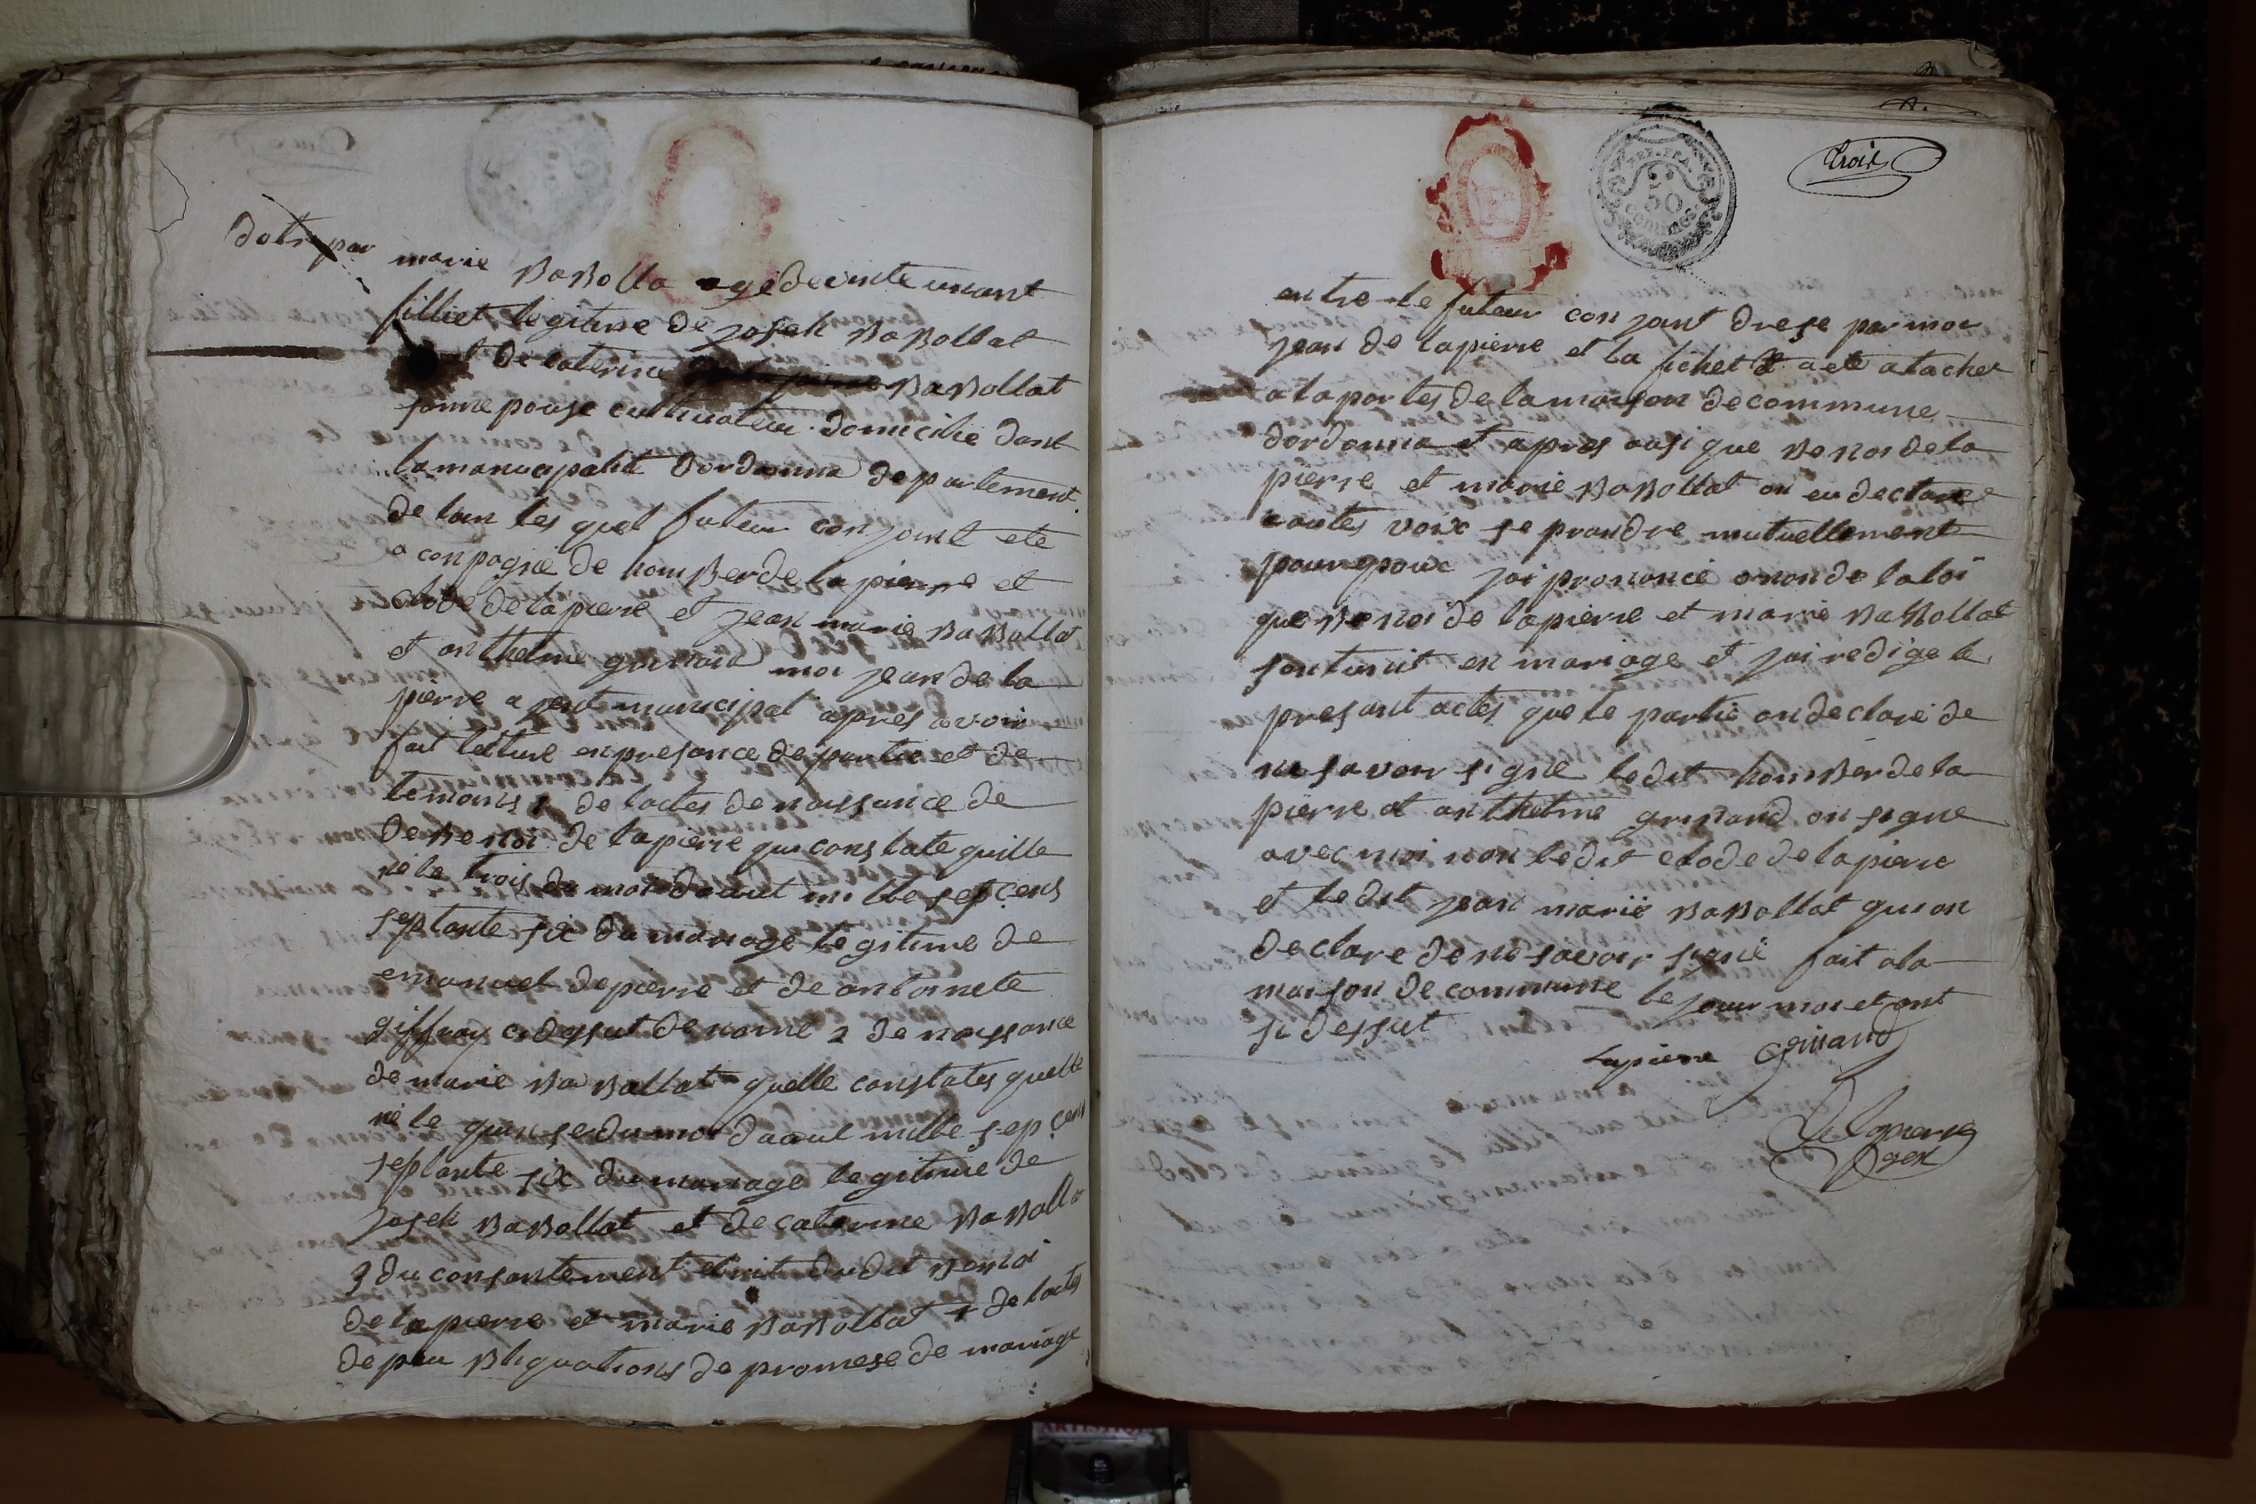 dotre par marie BaBolla age de vinte un ant
filliet legitime de joseh BaBollat
et de caterine BaBollat
sonnepouse cultivateur domicilie dant
la manucipalit dordonna departement
de lain les quel futeur conjoint ete
a conpagnié de homBer de lapierre et
clode de lapierre et jean marie BaBollat
et anthelme grinand moi jean de la
pierre agent municipal apres avoir
fait letture en presance de partie et de
temoins 1 de lactes de naissance de
de Benoi de lapierre qui constate quille
né le trois du moi daout mille sept cens
septante six du mariage legitime de
emanuel depierre et de antoinete
giffray ci desut de nome 2 de naissance
de marie BaBollat quelle constates quelle
né le quinse du moi daout mille sep cens
septante six du mariage legitime de
joseh BaBollat et de caterine BaBolla
3 du consantement etroit dudit Benoi
de lapierre et marie BaBollat 4 de lactes
de peu Bliquations de promese de mariage
REP. FRA.
50
CENTIMES
trois
entre le futeur conjoint drese par moi
jean de lapierre et la fichet a ete atacher
a la portes de la maison de commune
dordonna et apres ausi que Benoi de la
pierre et marie BaBollat on eu declare
a autes voix se prandre mutuellement
pour epoux jai prononcé o non de la loi
que Benoi de lapierre et marie BaBollat
sont unit en mariage et jai redige le
presant actes que le partie on declaré de
ne savoir signe ledit homBer de la
pierre et anthelme grinand on signe
avec moi non ledit clode de lapierre
et ledit jean marie BaBollat qui on
declare de ne savoir signé fait a la
maison de commune le jour moi et ant
si dessut
Lapierre Grinand
Delapierre
agent